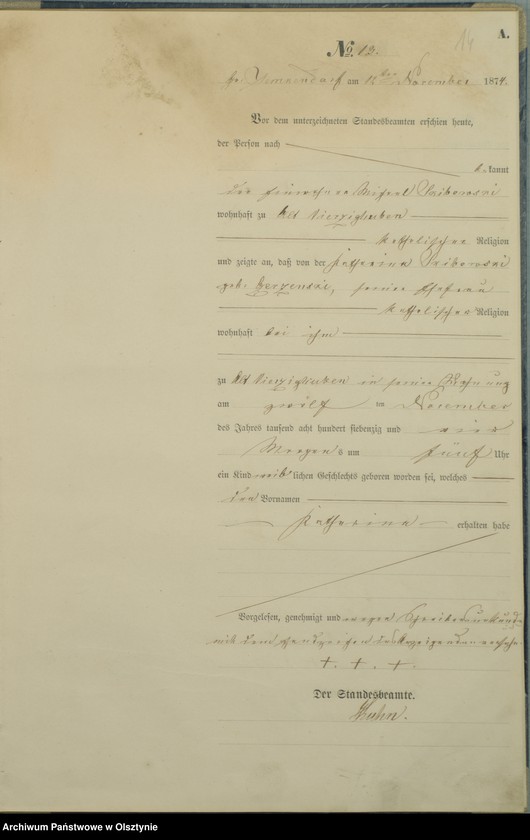 14
A.
No 13.
am 12ten November 1874.
Vor dem unterzeichneten Standesbeamten erschien heute,
der Person nach
bekannt
der Michael
wohnhaft zu Alt Vierzighuben
katholischer Religion
und zeigte an, daß von der Katharina
geb. seiner Ehefrau
katholischer Religion
wohnhaft bei ihm
zu Alt Vierzighuben in seiner Wohnung
am zwölf ten November
des Jahres tausend acht hundert siebenzig und vier
Morgens um fünf Uhr
ein Kind weiblichen Geschlechts geboren worden sei, welches
den Vornamen
Katharina erhalten habe
Vorgelesen, genehmigt und wegen Schreibensunkunde
mit dem Handzeichen des Anzeigenden versehen
+. +. +.
Der Standesbeamte.
Huhn.
Archiwum Państwowe w Olsztynie